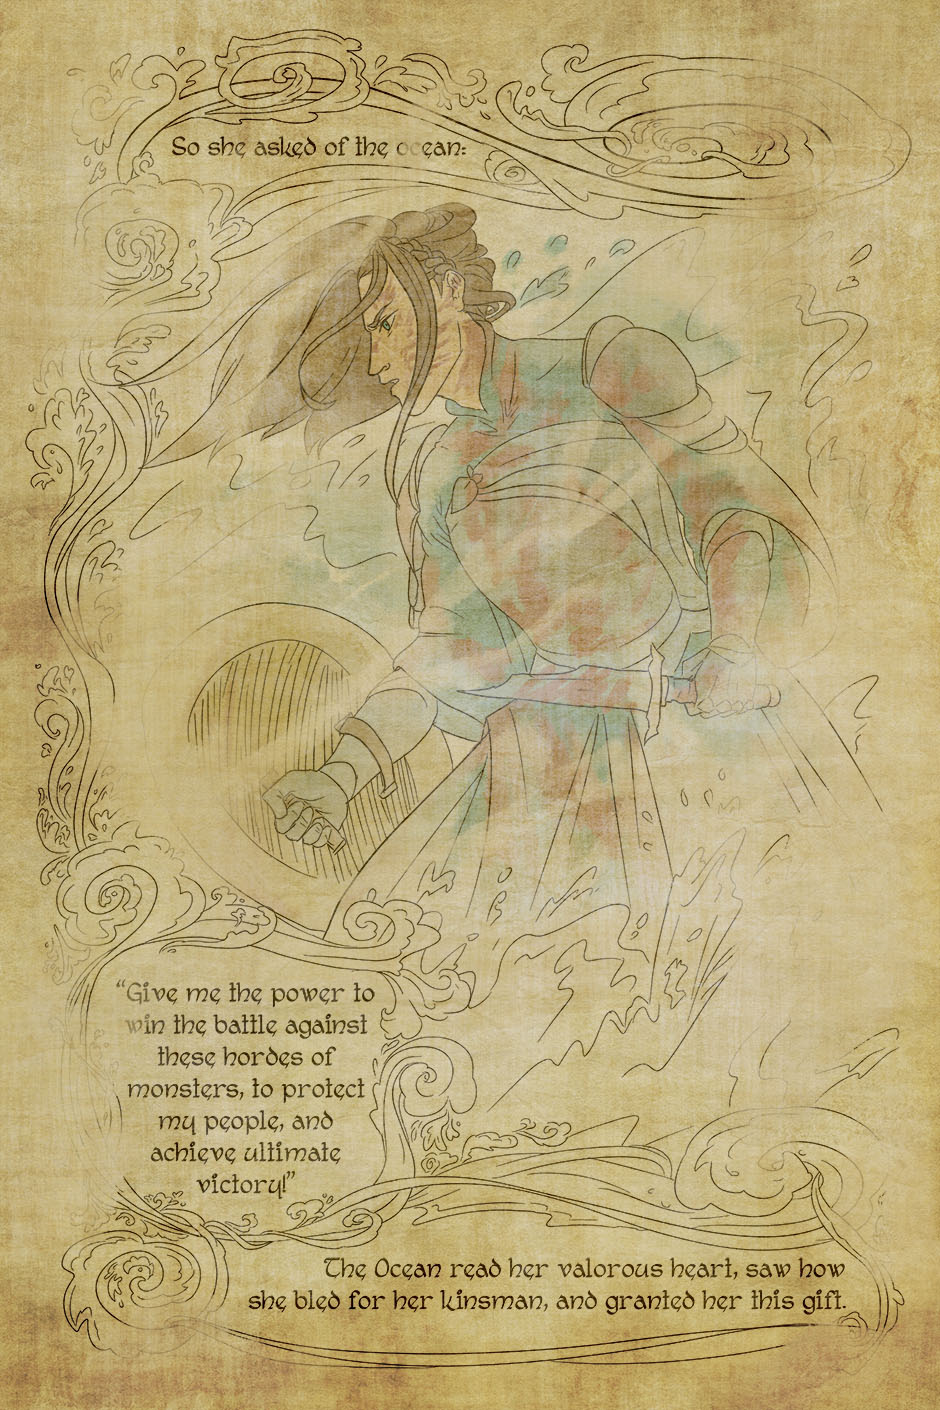 So she asked of the ocean:
“Give me the power to
win the battle against
these hordes of
monsters, to protect
my people, and
achieve ultimate
victory!”
The Ocean read her valorous heart, saw how
she bled for her kinsman, and granted her this gift.